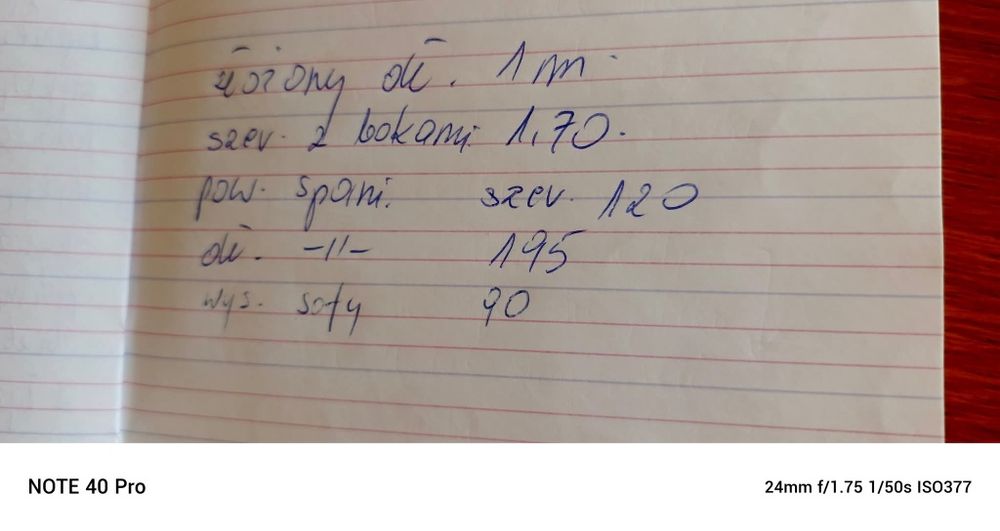 złożony dł. 1 m
szer. z bokami 1,70.
pow. spani. szer. 120
dł. -II- 195
wys. sofy 90
NOTE 40 Pro
24mm f/1.75 1/50s ISO377